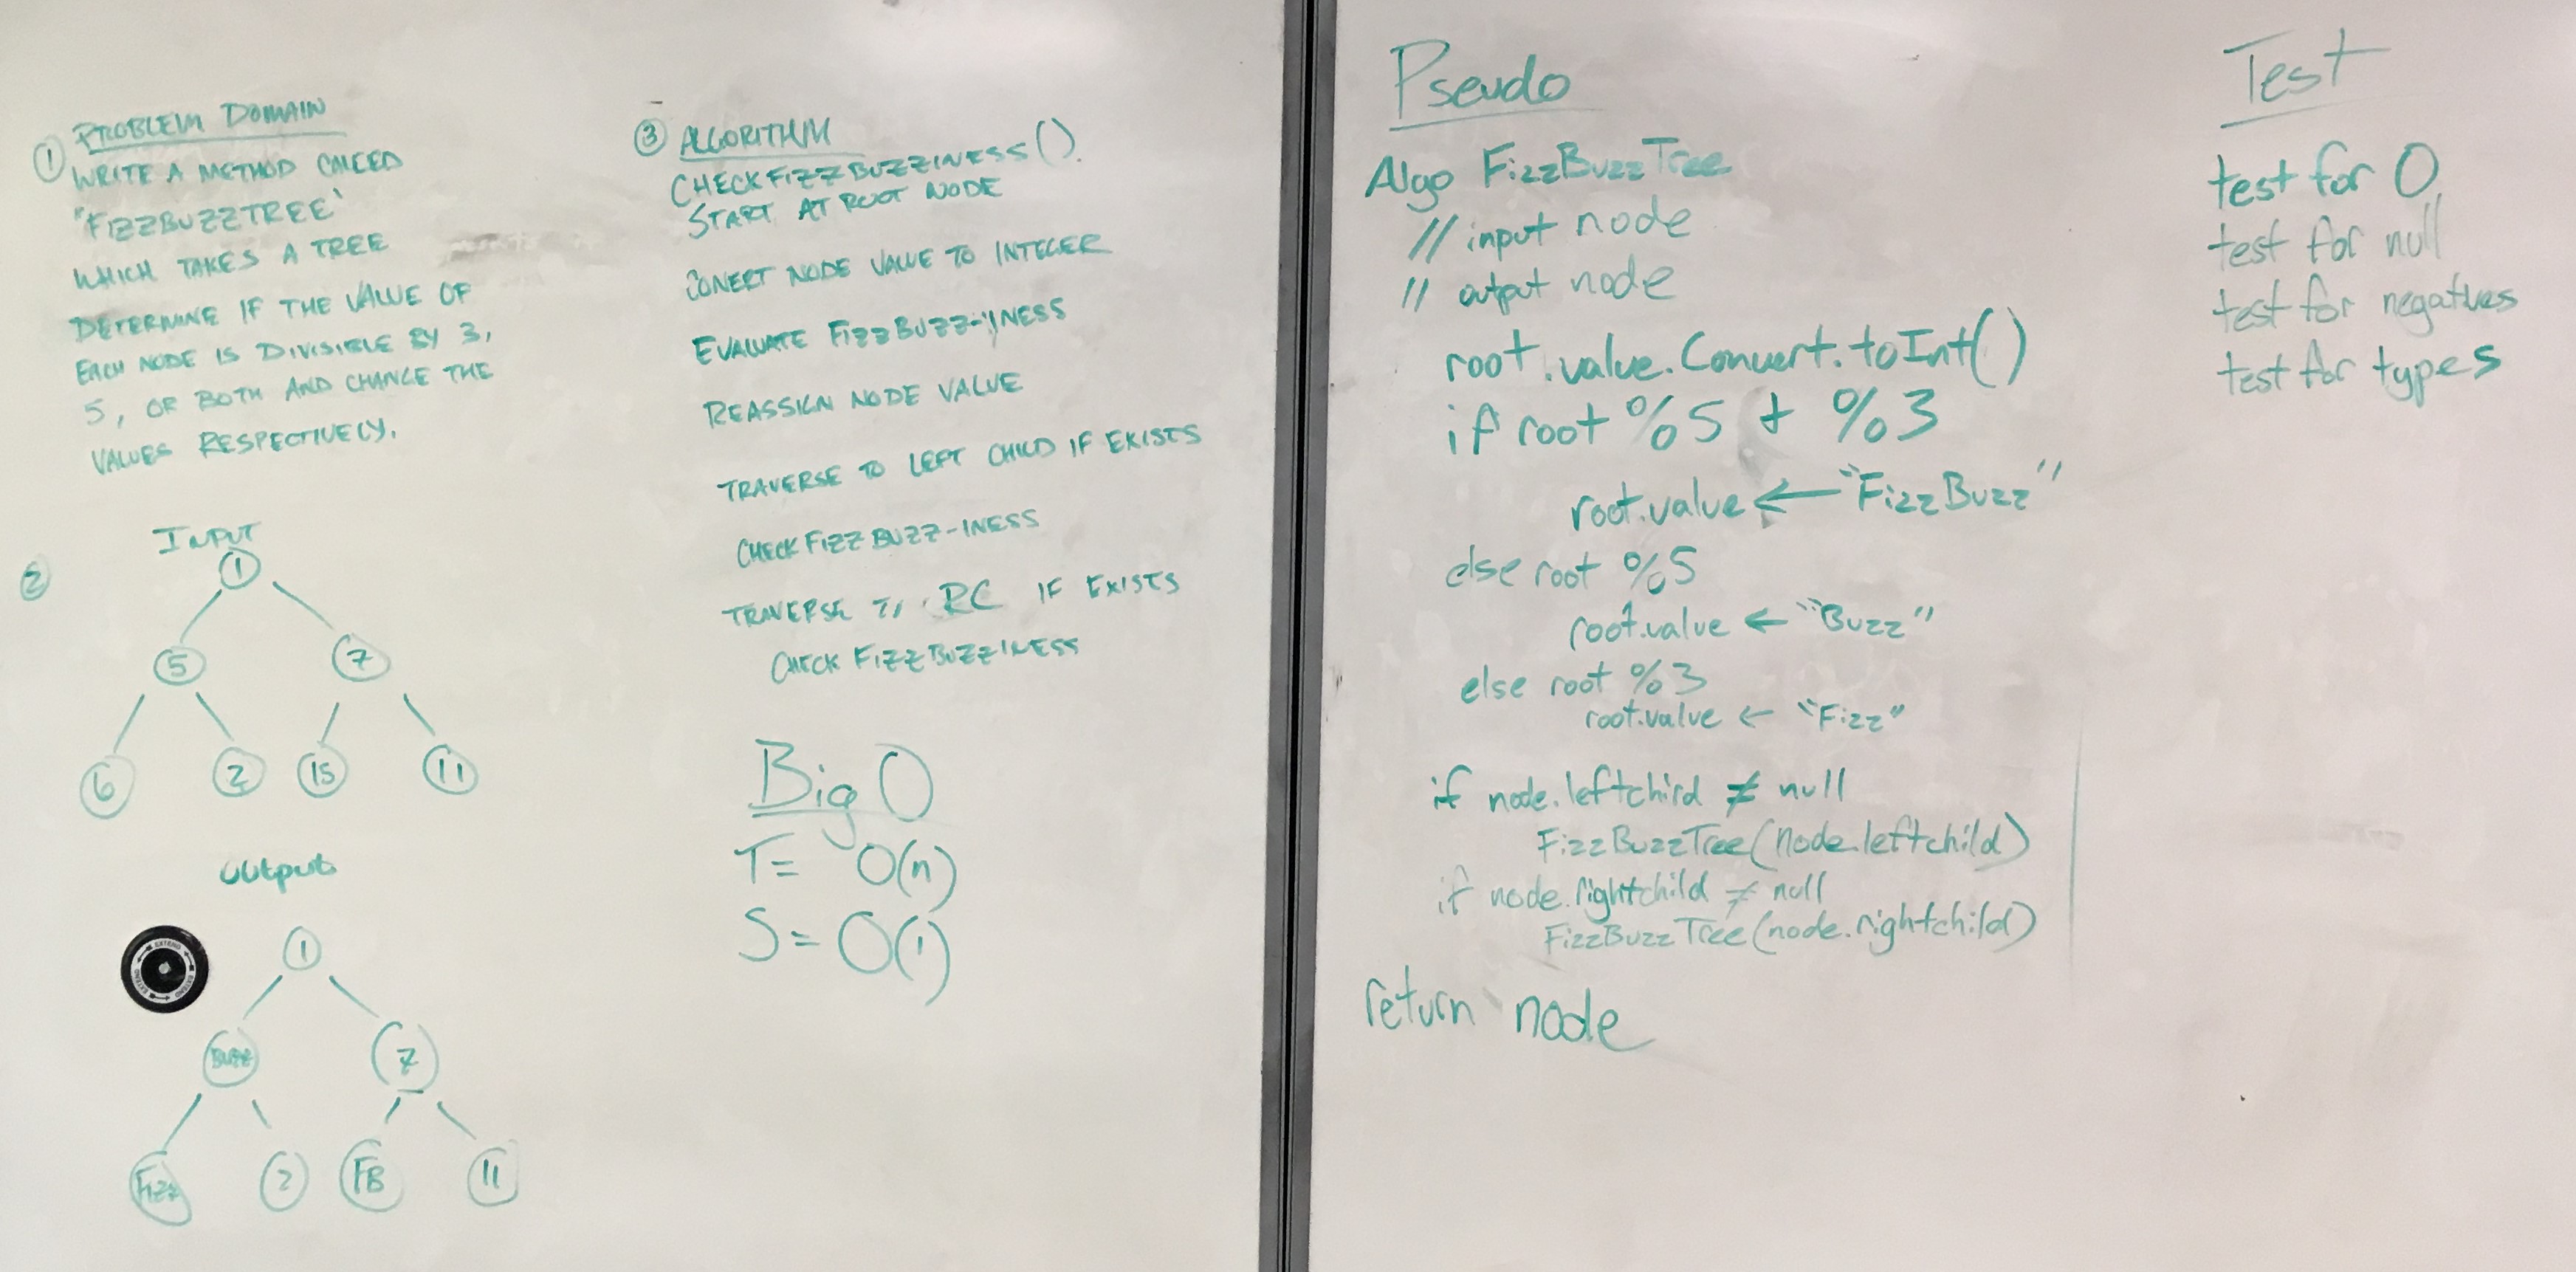 ① PROBLEM DOMAIN
WRITE A METHOD CALLED
"FIZZBUZZTREE"
WHICH TAKES A TREE
DETERMINE IF THE VALUE OF
EACH NODE IS DIVISIBLE BY 3,
5, OR BOTH AND CHANGE THE
VALUES RESPECTIVELY.
② INPUT
1
5 7
6 2 15 11
output
1
BUZZ 7
Fizz 2 FB 11
EXTEND EXTEND EXTEND EXTEND
③ ALGORITHM
CHECKFIZZBUZZINESS().
START AT ROOT NODE
CONERT NODE VALUE TO INTEGER
EVALUATE FIZZBUZZ-YNESS
REASSIGN NODE VALUE
TRAVERSE TO LEFT CHILD IF EXISTS
CHECK FIZZBUZZ-INESS
TRAVERSE TO RC IF EXISTS
CHECK FIZZBUZZINESS
Big O
T= O(n)
S= O(1)
Pseudo
Algo FizzBuzzTree
// input node
// output node
root.value.Convert.toInt()
if root %5 + %3
root.value ← "FizzBuzz"
else root %5
root.value ← "Buzz"
else root %3
root.value ← "Fizz"
if node.leftchild ≠ null
FizzBuzzTree(node.leftchild)
if node.rightchild ≠ null
FizzBuzzTree(node.rightchild)
return node
Test
test for 0
test for null
test for negatives
test for types